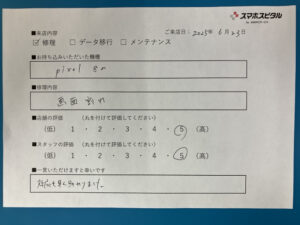 スマホスピタル
ご来店日：2025年 6月23日
■来店内容
☑ 修理 □ データ移行 □ メンテナンス
■お持ち込みいただいた機種
pixel 8a
■修理内容
画面割れ
■店舗の評価 (丸を付けて評価してください)
(低) 1 ・ 2 ・ 3 ・ 4 ・ 5 (高)
■スタッフの評価 (丸を付けて評価してください)
(低) 1 ・ 2 ・ 3 ・ 4 ・ 5 (高)
■一言いただけますと幸いです
対応も早く助かりました。